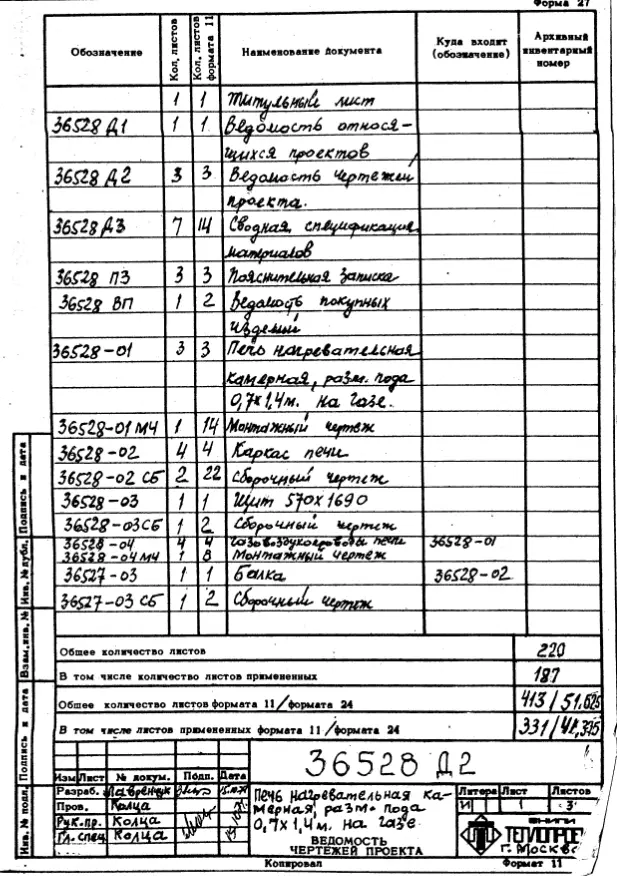 Форма 27
Обозначение Кол. листов Кол. листов формата 11 Наименование документа Куда входит (обозначение) Архивный инвентарный номер
1 1 Титульный лист
36528 Д1 1 1 Ведомость относя-
щихся проектов
36528 Д2 3 3 Ведомость чертежей
проекта.
36528 Д3 7 14 Сводная спецификация
материалов
36528 ПЗ 3 3 Пояснительная записка
36528 ВП 1 2 Ведомость покупных
изделий
36528-01 3 3 Печь нагревательная
камерная, разм. пода
0,7×1,4м. на газе.
36528-01 МЧ 1 14 Монтажный чертеж
36528-02 4 4 Каркас печи
36528-02 СБ 2 22 Сборочный чертеж
36528-03 1 1 Щит 570×1690
36528-03СБ 1 2 Сборочный чертеж
36528-04 4 4 Газовоздухопроводы печи 36528-01
36528-04МЧ 1 8 Монтажный чертеж
36527-03 1 1 Балка 36528-02
36527-03 СБ 1 2 Сборочный чертеж
Общее количество листов 220
В том числе количество листов примененных 187
Общее количество листов формата 11/формата 24 413/51,625
В том числе листов примененных формата 11/формата 24 331/41,375
Инв. № подл. Подпись и дата Взам. инв. № Инв. № дубл. Подпись и дата
36528 Д2
Изм Лист № докум. Подп. Дата
Разраб. Лавренчук
Пров. Колца
Рук.пр. Колца
Гл. спец Колца
Печь нагревательная ка-
мерная, разм. пода
0,7×1,4м. на газе
ВЕДОМОСТЬ
ЧЕРТЕЖЕЙ ПРОЕКТА
Литера Лист Листов
И 1 3
ВНИПИ
ТЕПЛОПРОЕ
г. Москва
Копировал Формат 11